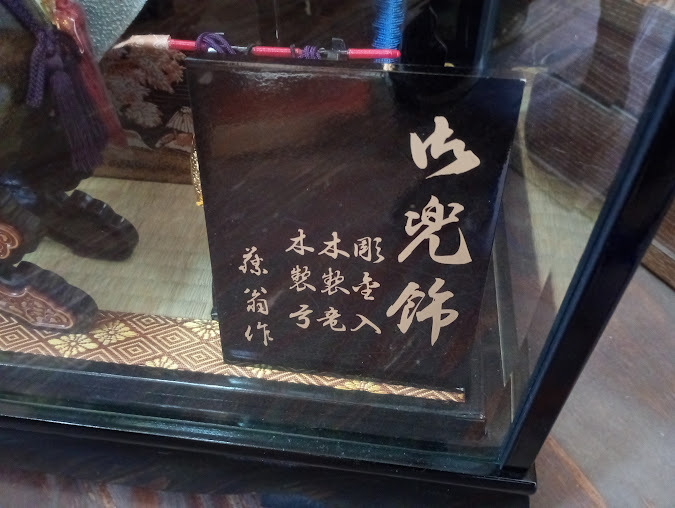 御兜飾
彫金入
木製竜
木製弓
藤翁作